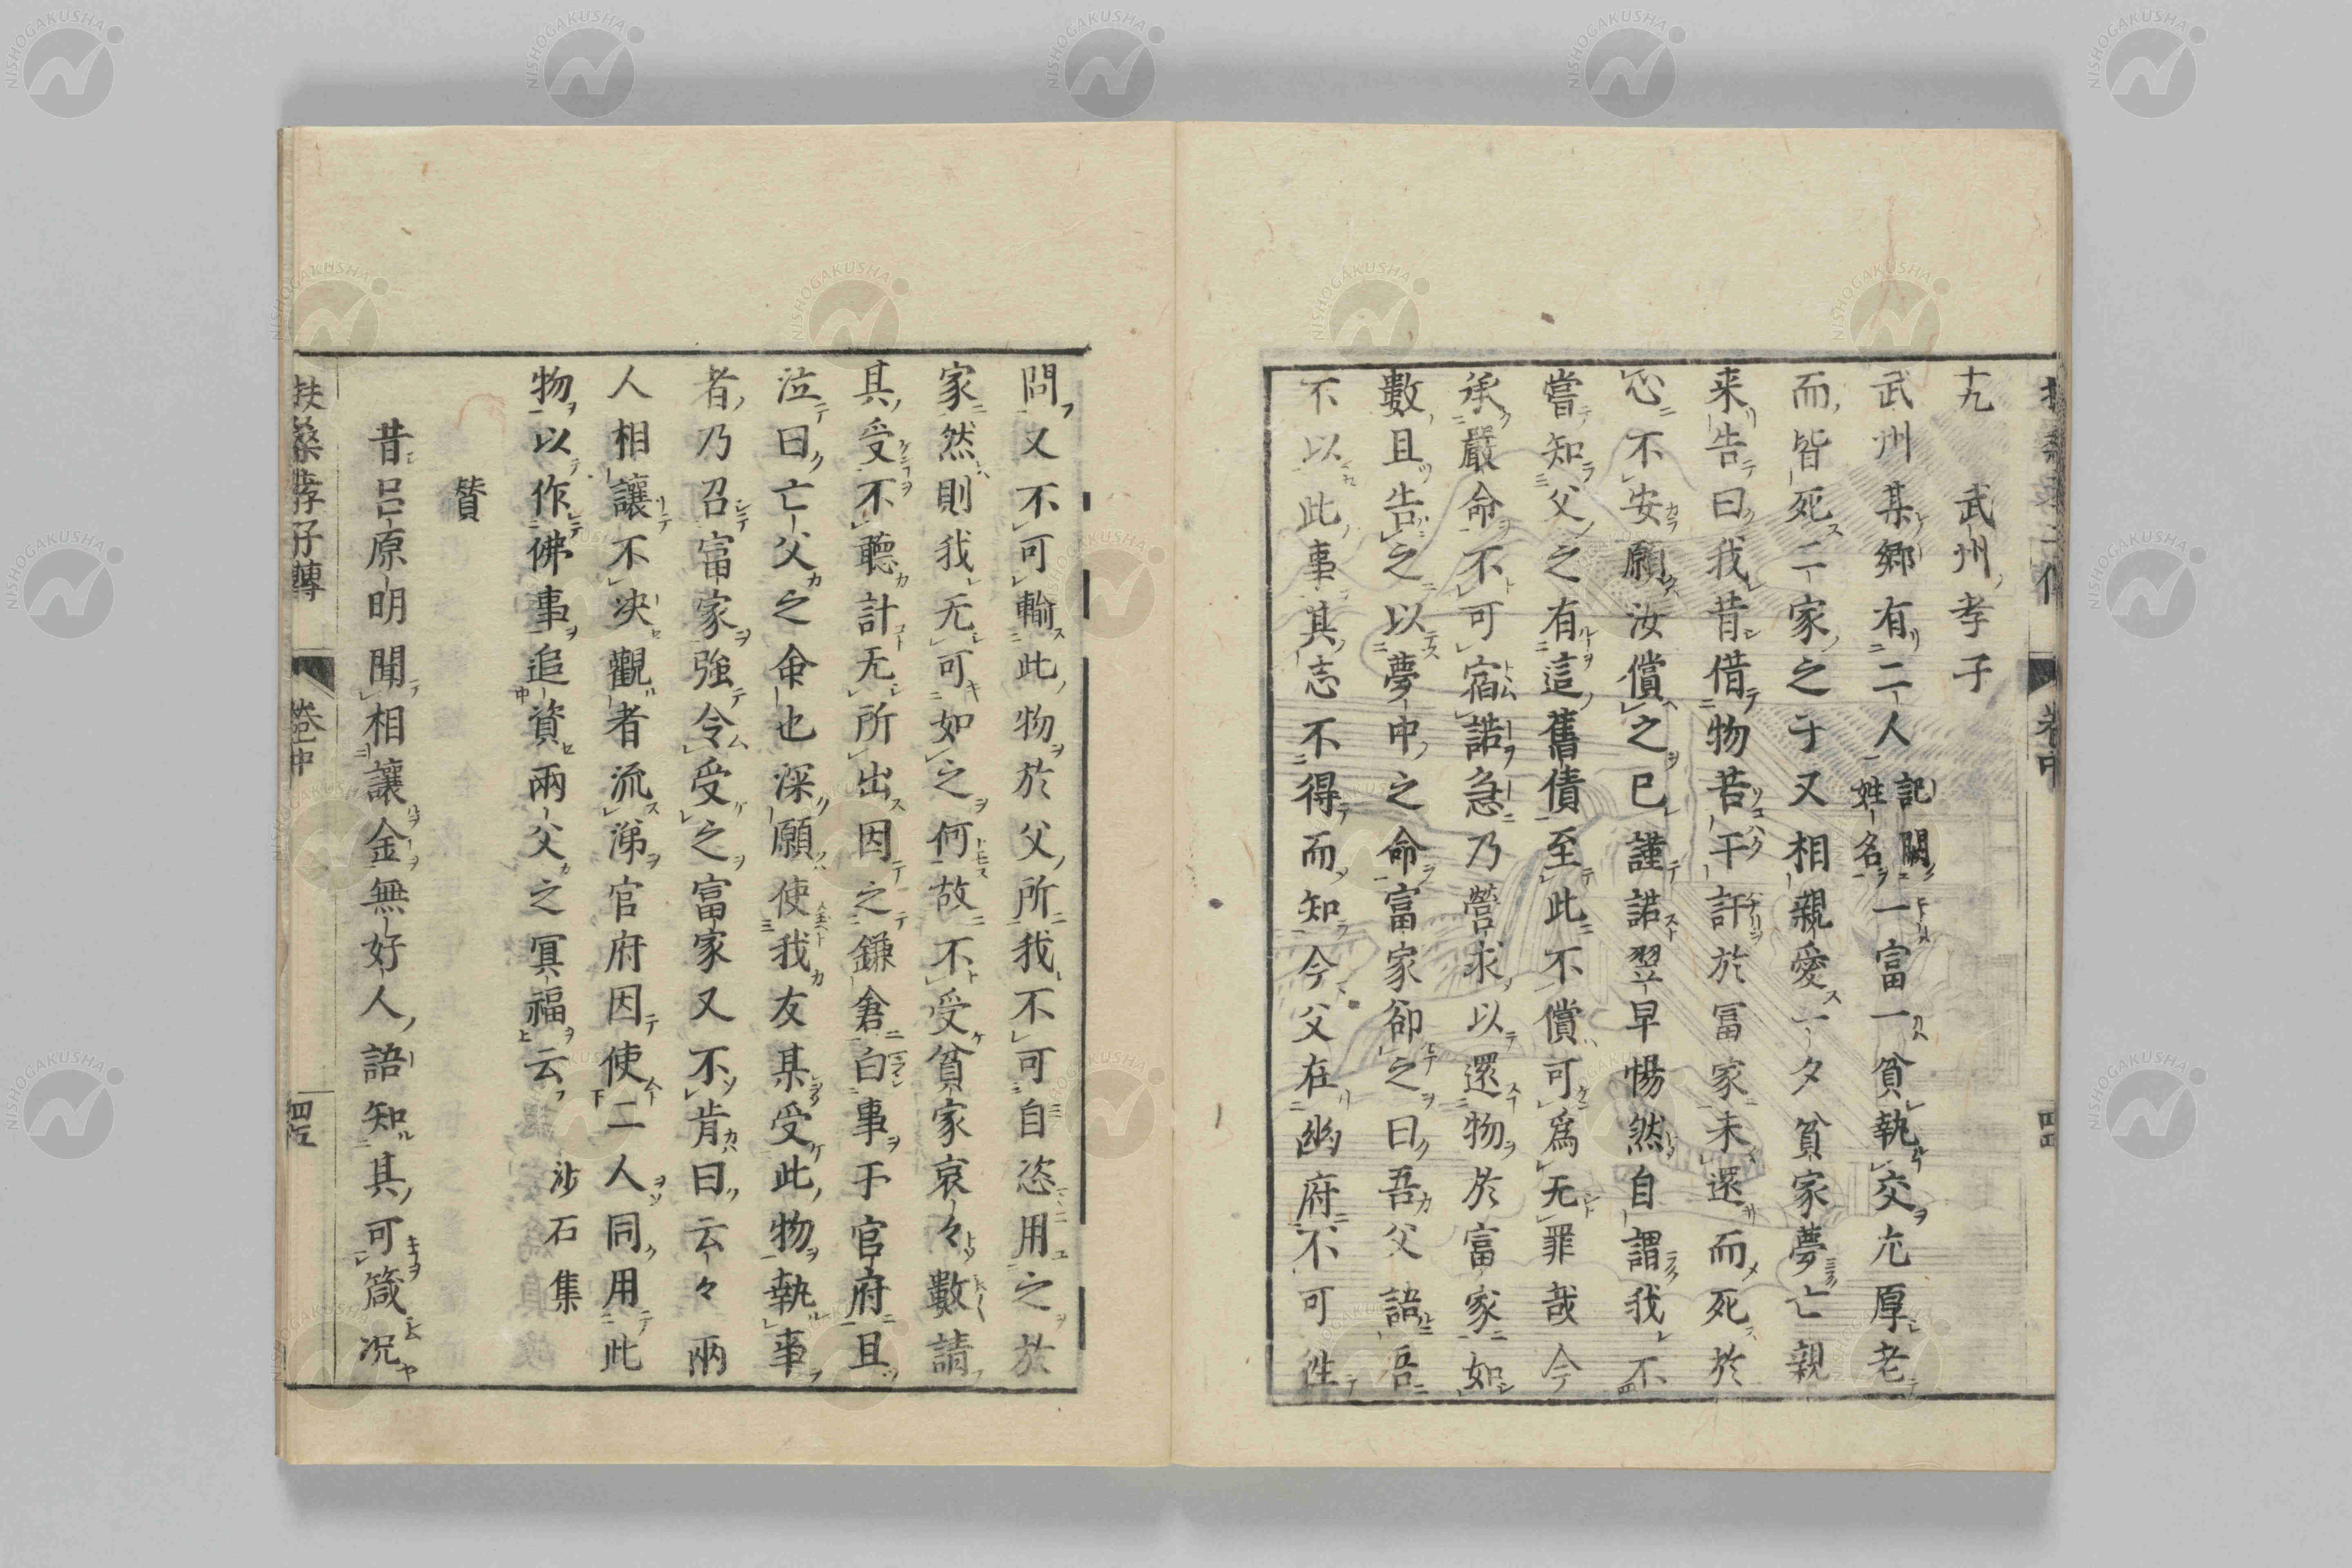 十九 武州孝子
武州某郷有二人記闕姓名一富一貧執交尤厚老
而皆死二家之子又相親愛一夕貧家夢亡親
来告曰我昔借物若干許於冨家未還而死於
心不安願汝償之已謹諾翌早惕然自謂我不
嘗知父之有這舊債至此不償可為无罪哉今
承嚴命不可宿諾急乃營求以還物於富家如
數且告之以夢中之命富家卻之曰吾父語吾
不以此事其志不得而知今父在幽府不可往
問又不可輸此物於父所我不可自恣用之於
家然則我无可如之何故不受貧家哀々數請
其受不聽計无所出因之鎌倉白事于官府且
泣曰亡父之命也深願使我友某受此物執事
者乃召富家強令受之富家又不肯曰云々兩
人相讓不决觀者流涕官府因使二人同用此
物以作佛事追資兩父之冥福云 沙石集
賛
昔呂原明聞相讓金無好人語知其可箴况
扶桑孝子傳 卷中 四左